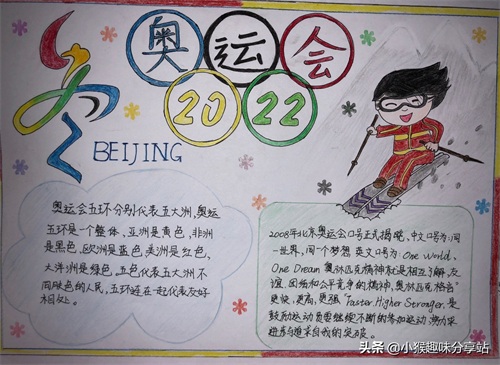 奥运会
2022
BEIJING
奥运会五环分别代表五大洲,奥运
五环是一个整体,亚洲是黄色,非洲
是黑色,欧洲是蓝色,美洲是红色,
大洋洲是绿色,五色代表五大洲不
同肤色的人民,五环连在一起代表友好
相处。
2008年北京奥运会口号正式揭晓,中文口号为:同
一世界,同一个梦想 英文口号为:One World,
One Dream 奥林匹克精神就是相互了解,友
谊,团结和公平竞争的精神,奥林匹克格言
更快,更高,更强"Faster.Higher Stronger.是
鼓励运动员要继续不断的参加运动,努力求
进步与追求自我的突破。
头条 @小猴趣味分享站